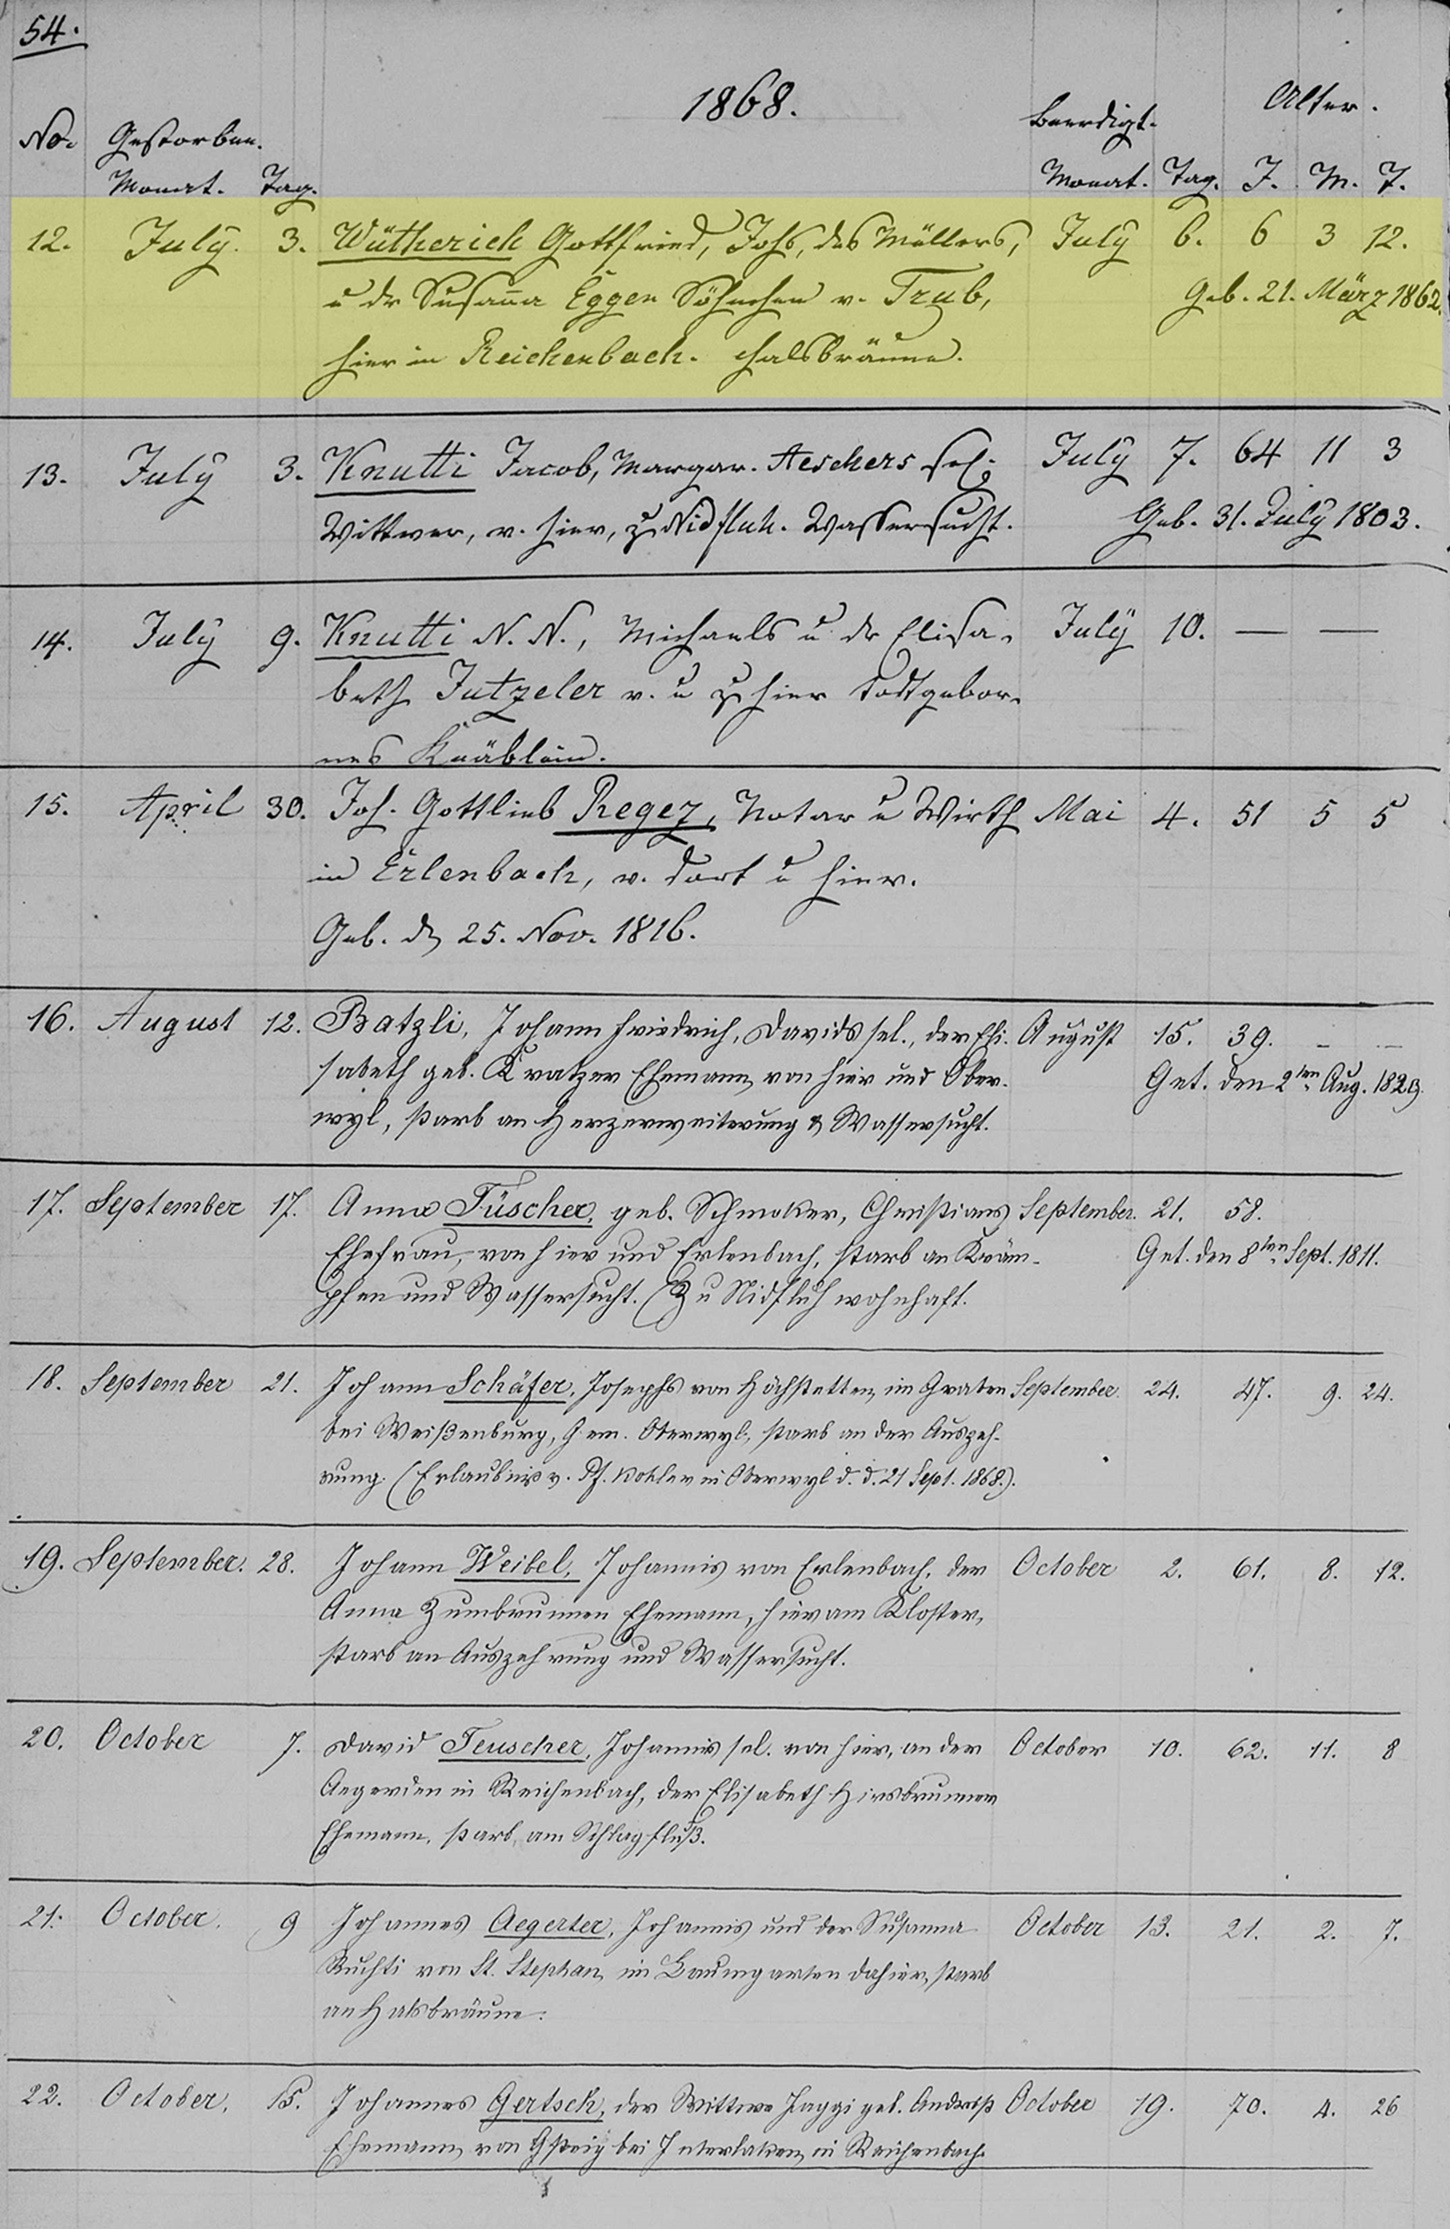 54.
1868.
No. Gestorben. Beerdigt. Alter.
Monat. Tag. Monat. Tag. J. M. T.
12. July. 3. Wütherich Gottfried, Johs, des Müllers, July 6. 6 3 12.
u dr Susaña Eggen Söhnchen v. Trub, Geb. 21. März 1862.
hier in Reichenbach. Halsbräune.
13. July 3. Knutti Jacob, Margar. Aeschers sel. July 7. 64 11 3
Wittwer, v. hier, zu Nidfluh. Wassersucht. Geb. 31. July 1803.
14. July 9. Knutti N. N., Michaels u dr Elisa- July 10. — —
beth Jutzeler v. u zu hier todtgebor-
nes Knäblein.
15. April 30. Joh. Gottlieb Regez, Notar u Wirth Mai 4. 51 5 5
in Erlenbach, v. dort u hier.
Geb. d. 25. Nov. 1816.
16. August 12. Batzli, Johann Friedrich, Davids sel., der Eli- August 15. 39. – –
sabeth geb. Kratzer Ehemann, von hier und Ober- Get. den 2ten Aug. 1829.
wyl, starb an Herzerweiterung & Wassersucht.
17. September 17. Anna Tüscher, geb. Schmoker, Christians September. 21. 58.
Ehefrau, von hier und Erlenbach, starb an Kräm- Get. den 8ten Sept. 1811.
pfen und Wassersucht. (Zu Nidfluh wohnhaft.
18. September 21. Johann Schäfer, Josephs von Höchstetten, im Graben September. 24. 47. 9. 24.
bei Weißenburg, Gem. Oberwyl, starb an der Auszeh-
rung. (Erlaubniß v. Pf. Kohler in Oberwyl d. d. 21 Sept. 1868.).
19. September. 28. Johann Weibel, Johannis von Erlenbach, der October 2. 61. 8. 12.
Anna Zumbrunnen Ehemann, hier am Kloster,
starb an Auszehrung und Wassersucht.
20. October 7. David Teuscher, Johannis sel. von hier, an der October 10. 62. 11. 8
Aegerden in Reichenbach, der Elisabeth Hirsbrunner
Ehemann, starb am Schlagfluß.
21. October. 9 Johannes Aegerter, Johannis und der Susanna October 13. 21. 2. 7.
Ruchti von St. Stephan, im Baumgarten dahier, starb
an Halsbräune.
22. October. 15. Johannes Gertsch, der Wittwe Jaggi geb. October 19. 70. 4. 26
Ehemann, von Gsteig bei Interlaken, in Reichenbach.